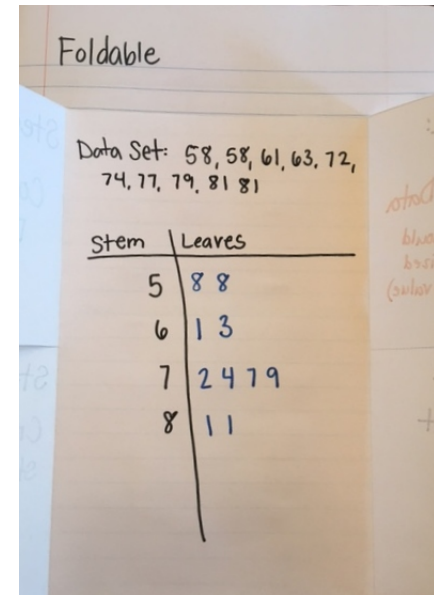 Foldable
Data Set: 58, 58, 61, 63, 72,
74, 77, 79, 81 81
Stem Leaves
5 8 8
6 1 3
7 2 4 7 9
8 1 1
Data
value)